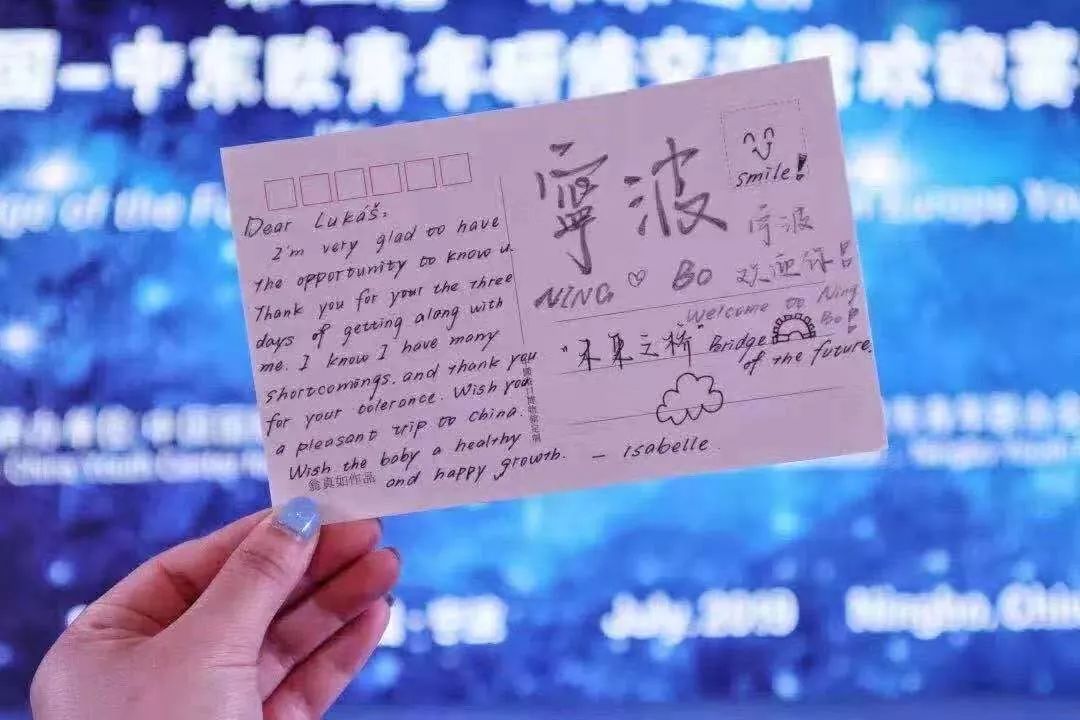 国-中东欧青年研修交流营欢迎宴
Europe You
Dear Lukáš:
I'm very glad to have
the opportunity to know u.
Thank you for your the three
days of getting along with
me. I know I have many
shortcomings, and thank you
for your tolerance. Wish you
a pleasant trip to China.
Wish the baby a healthy
and happy growth.
翁真如作品
smile!
寧波
宁波
NING BO
欢迎你!
Welcome to Ning
Bo!
"未来之桥" Bridge
of the future.
— Isabelle
July, 2019
Ningbo, Chi